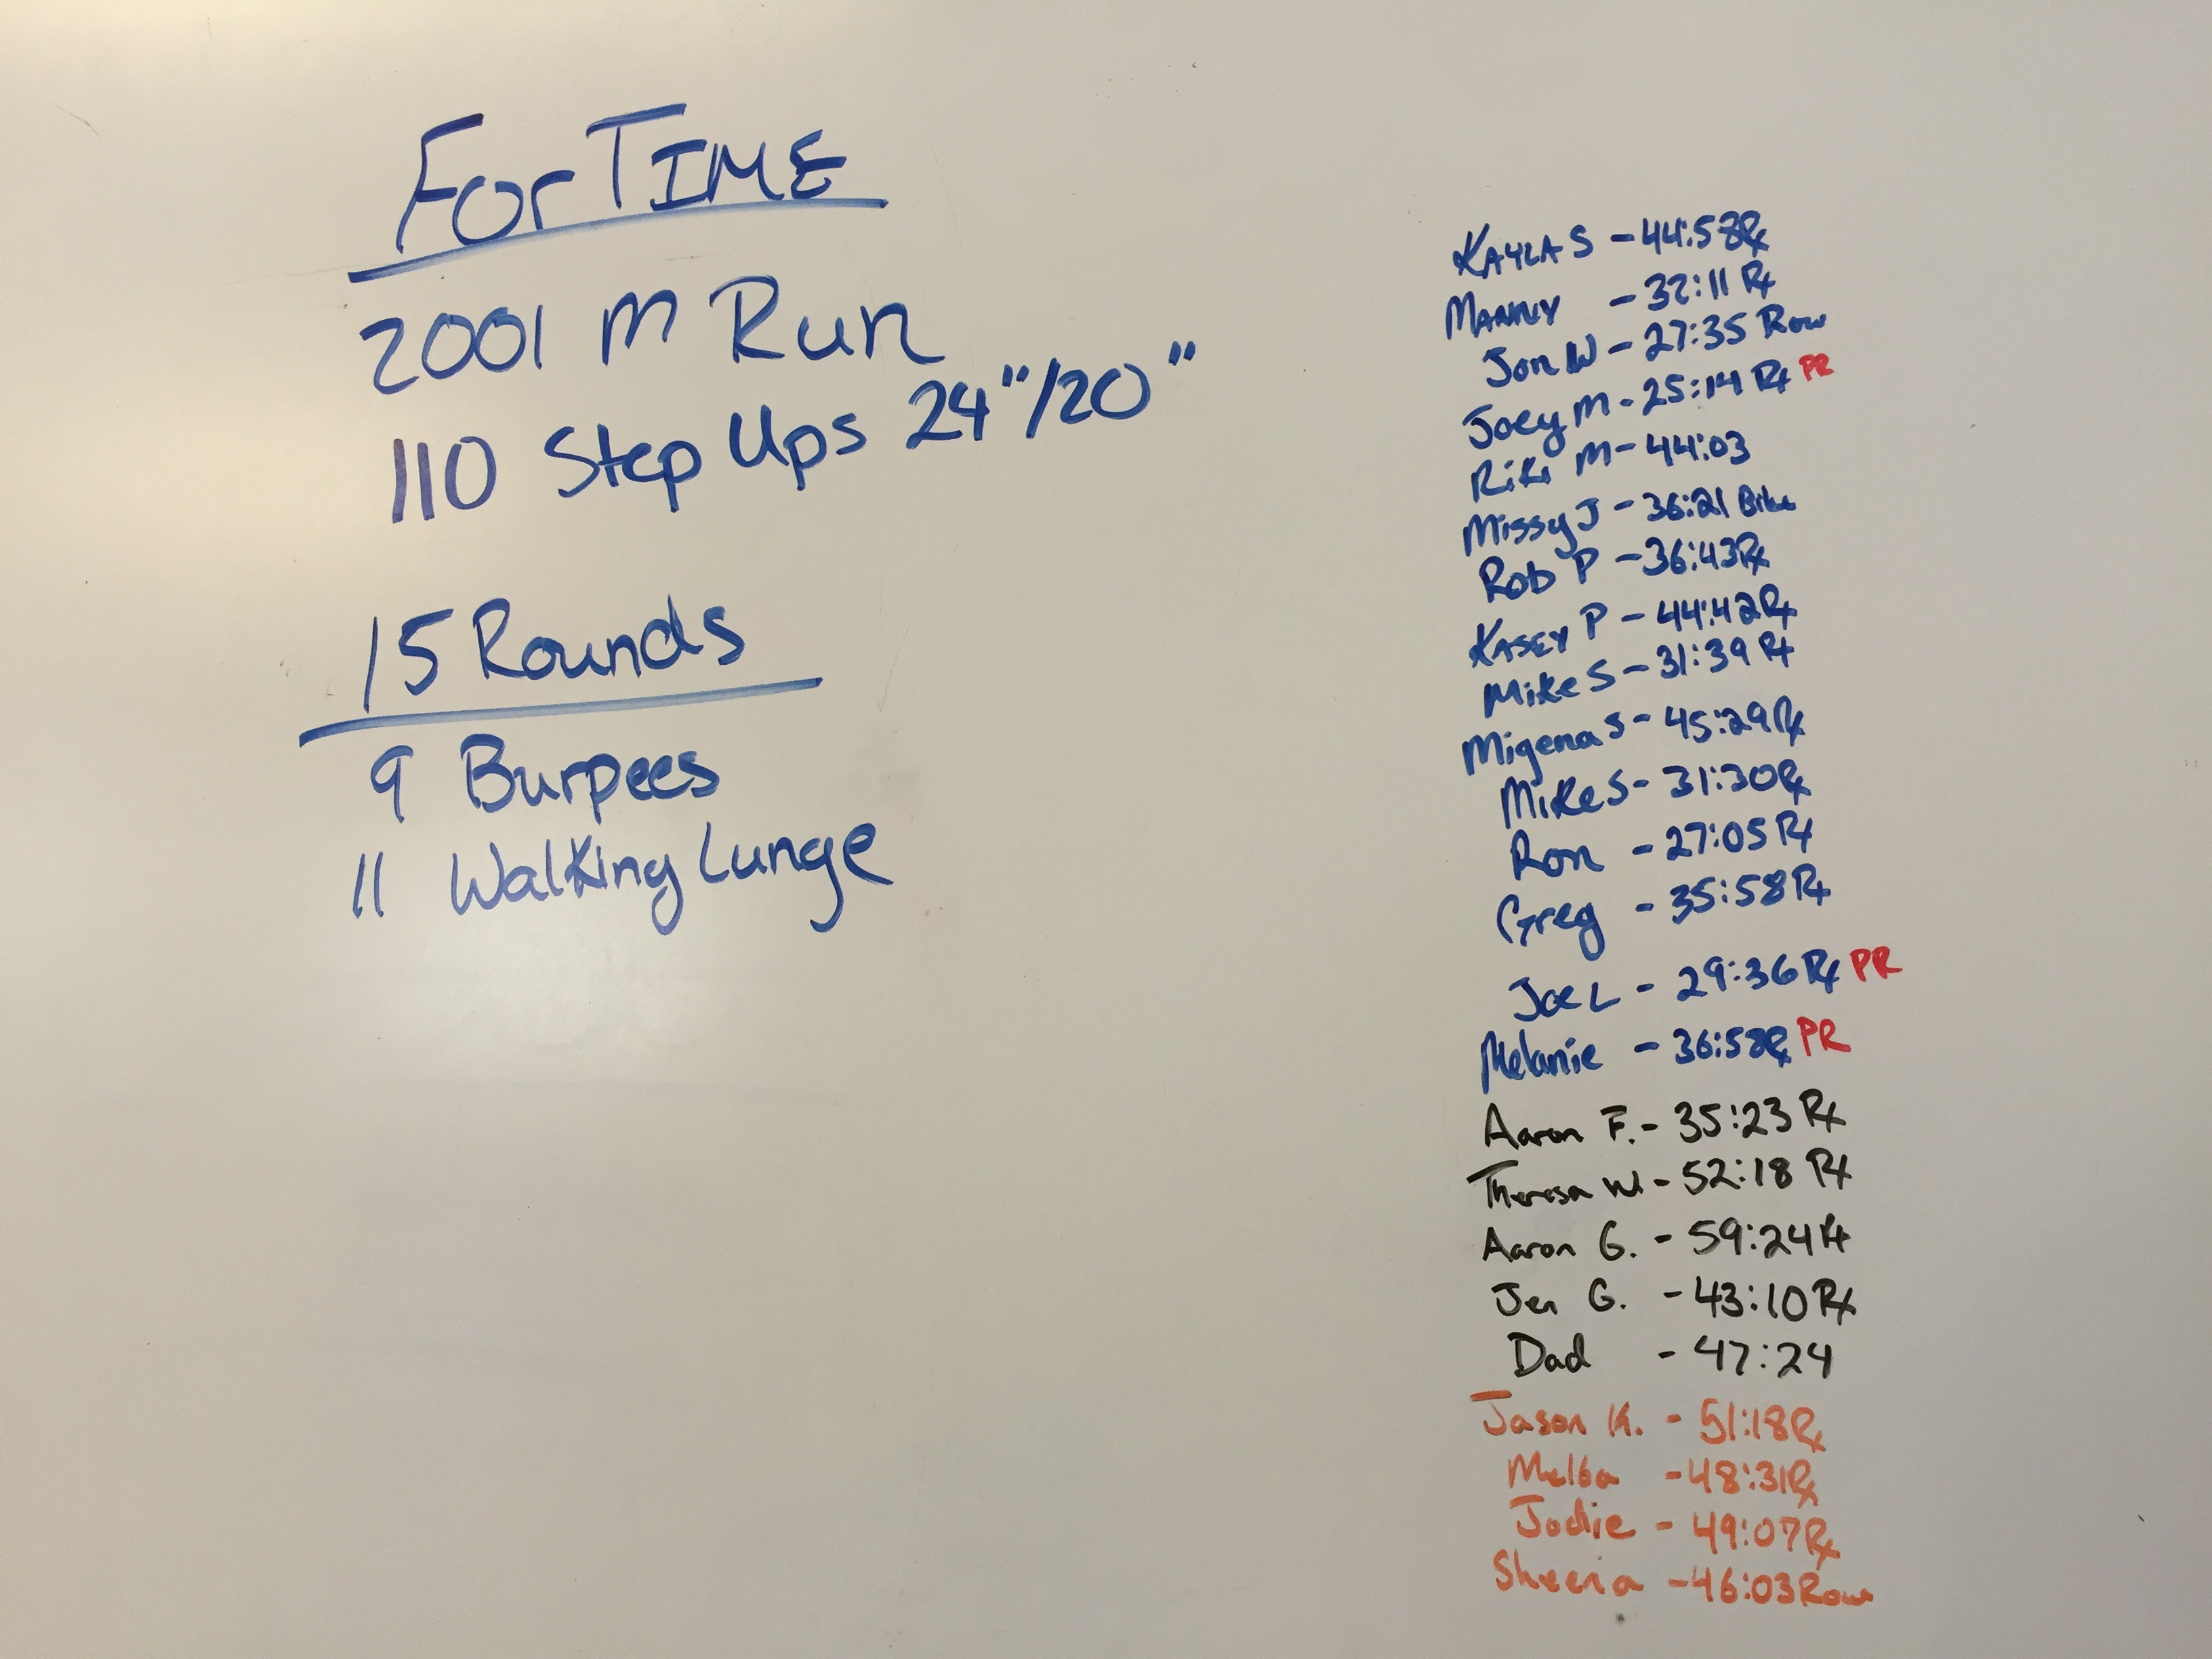 For TIME
2001 m Run
110 Step Ups 24"/20"
15 Rounds
9 Burpees
11 Walking Lunge
KAYLA S - 44:58 Rx
MANNY - 32:11 Rx
Jon W - 27:35 Row
Joey M - 25:14 Rx PR
Riki M - 44:03
Missy J - 36:21 Bike
Rob P - 36:43 Rx
KASEY P - 44:42 Rx
Mike S - 31:39 Rx
Migena S - 45:29 Rx
Mike S - 31:30 Rx
Ron - 27:05 Rx
Greg - 35:58 Rx
Joe L - 29:36 Rx PR
Melanie - 36:58 Rx PR
Aaron F. - 35:23 Rx
Theresa W. - 52:18 Rx
Aaron G. - 59:24 Rx
Jen G. - 43:10 Rx
Dad - 47:24
Jason K. - 51:18 Rx
Melba - 48:31 Rx
Jodie - 49:07 Rx
Sheena - 46:03 Row